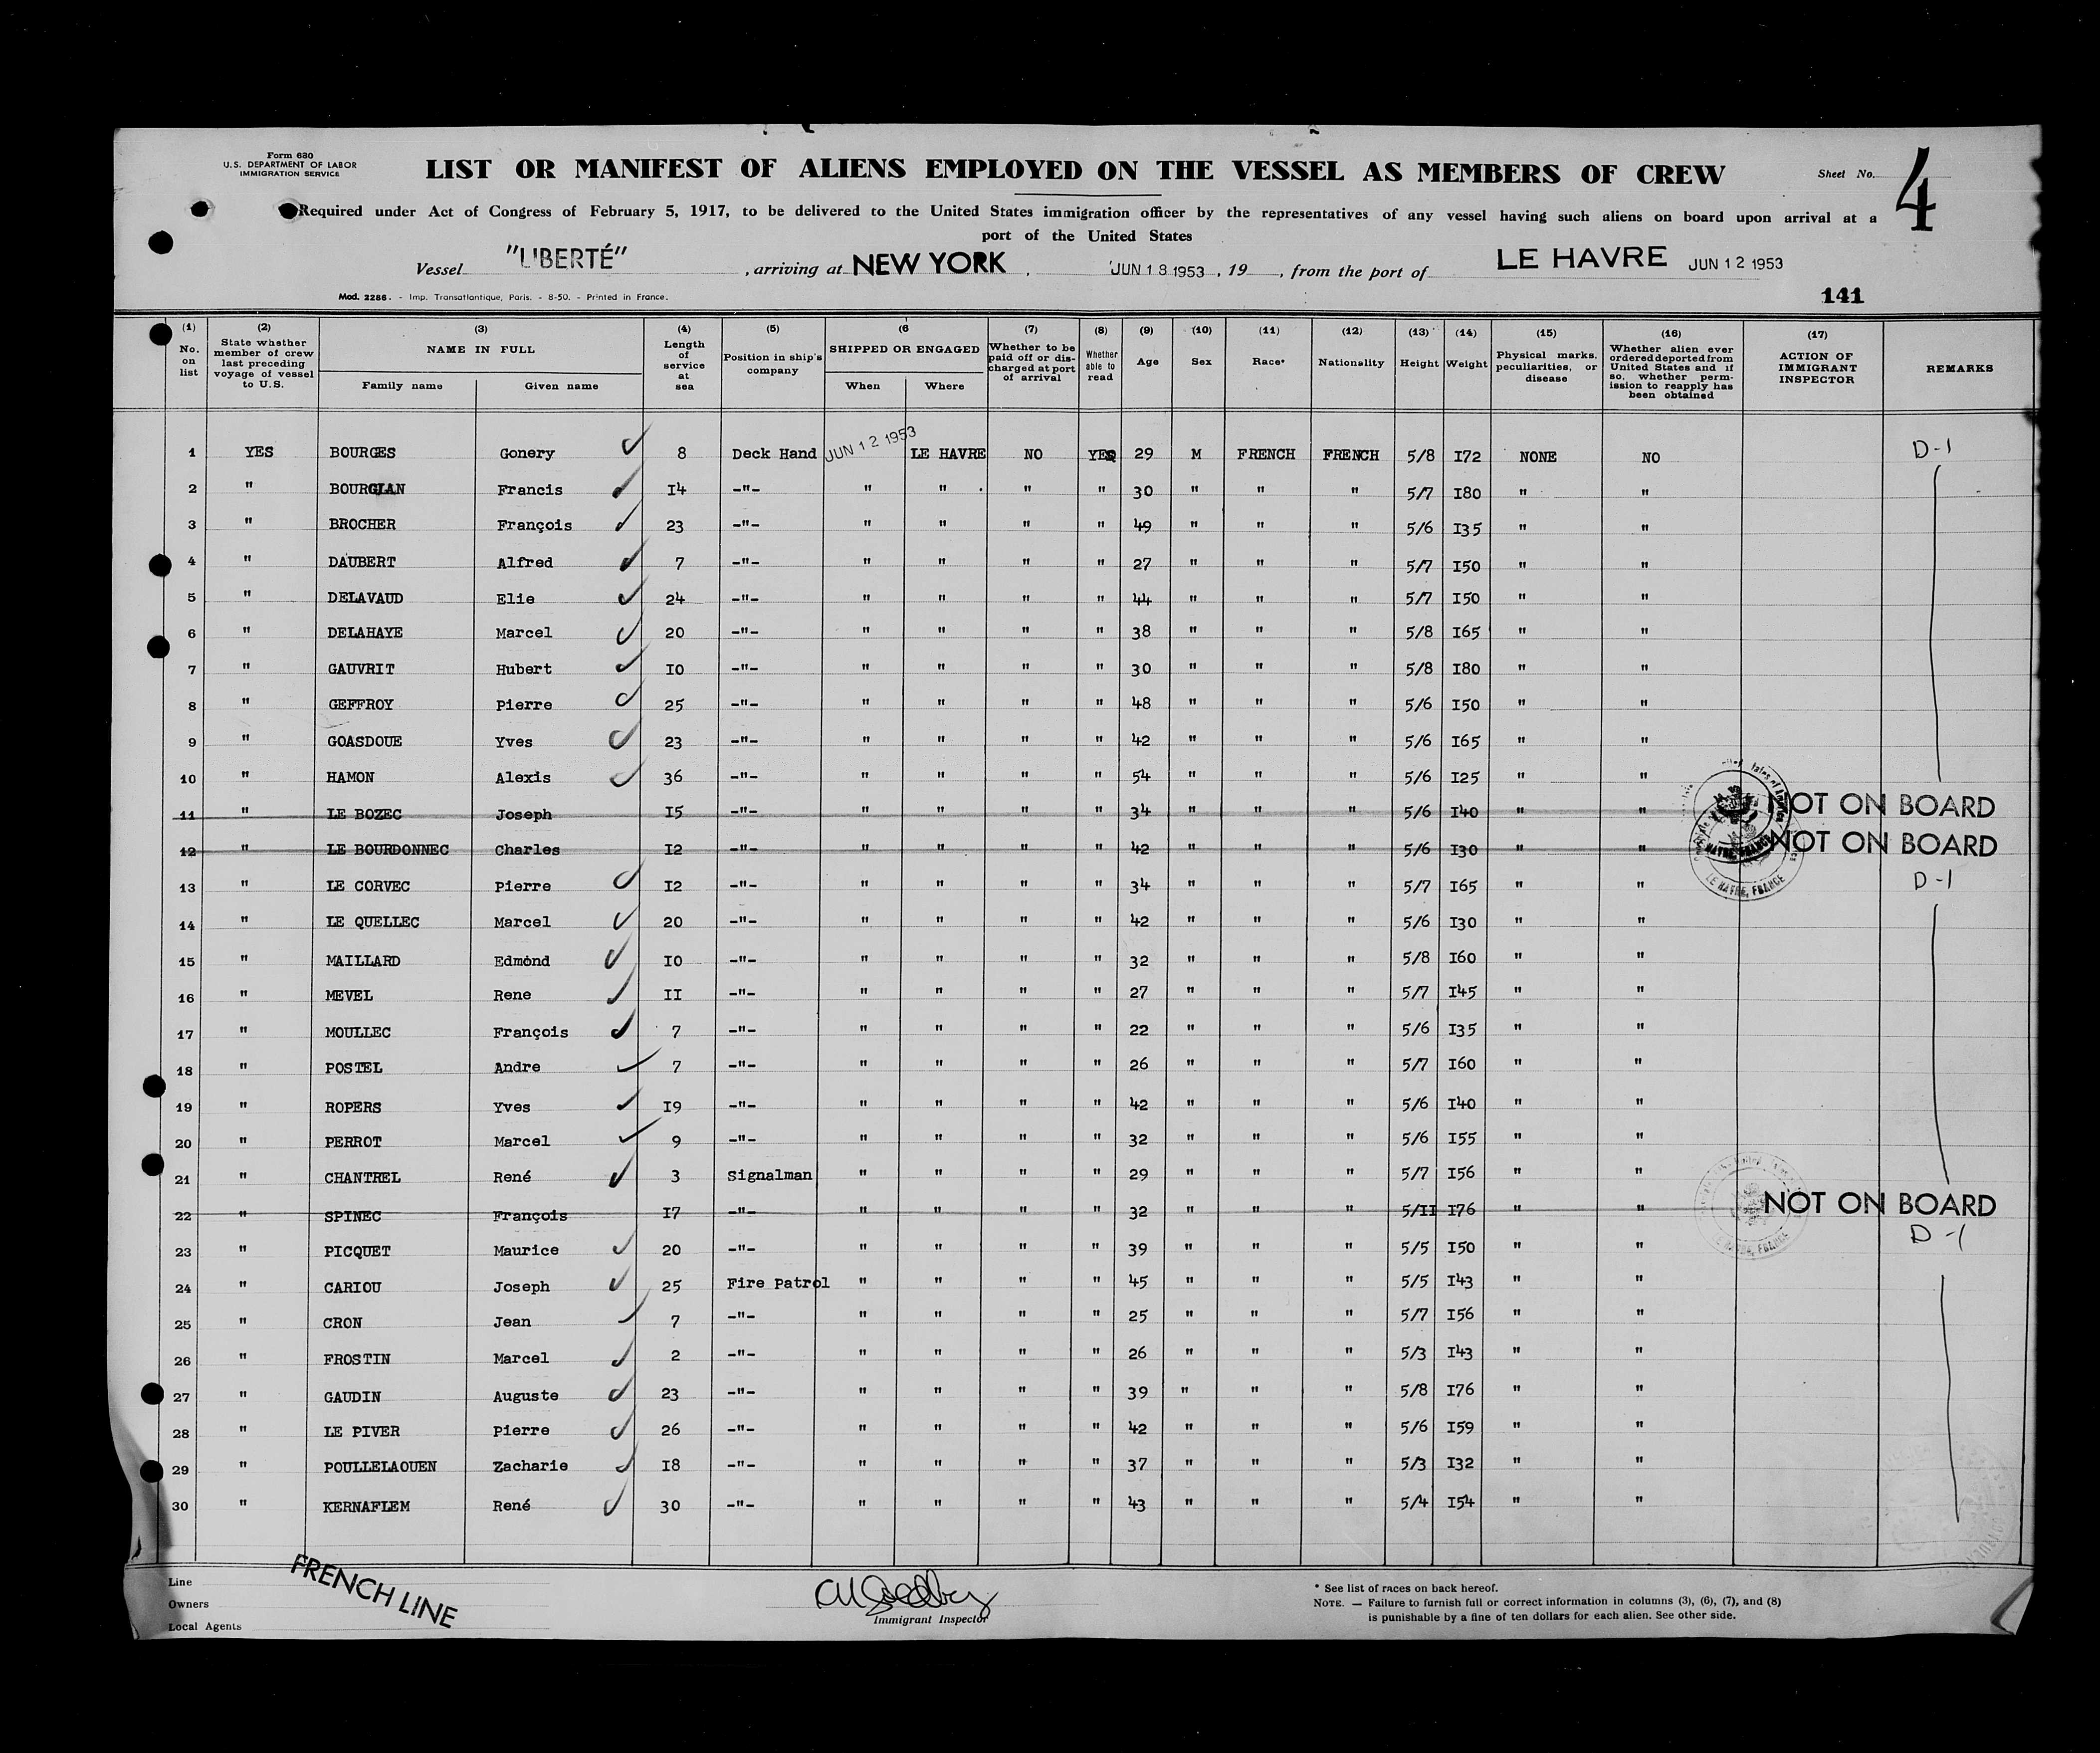 Form 680
U.S. DEPARTMENT OF LABOR
IMMIGRATION SERVICE
LIST OR MANIFEST OF ALIENS EMPLOYED ON THE VESSEL AS MEMBERS OF CREW
Sheet No. 4
Required under Act of Congress of February 5, 1917, to be delivered to the United States immigration officer by the representatives of any vessel having such aliens on board upon arrival at a
port of the United States
Vessel "LIBERTÉ", arriving at NEW YORK, JUN 18 1953, 19 , from the port of LE HAVRE JUN 12 1953
Mod. 2286. - Imp. Transatlantique, Paris. - 8-50. - Printed in France.
141
(1) No. on list (2) State whether member of crew last preceding voyage of vessel to U.S. (3) NAME IN FULL Family name Given name (4) Length of service at sea (5) Position in ship's company (6 SHIPPED OR ENGAGED When Where (7) Whether to be paid off or discharged at port of arrival (8) Whether able to read (9) Age (10) Sex (11) Race* (12) Nationality (13) Height (14) Weight (15) Physical marks, peculiarities, or disease (16) Whether alien ever ordered deported from United States and if so, whether permission to reapply has been obtained (17) ACTION OF IMMIGRANT INSPECTOR REMARKS
1 YES BOURGES Gonery 8 Deck Hand JUN 12 1953 LE HAVRE NO YES 29 M FRENCH FRENCH 5/8 I72 NONE NO D-1
2 " BOURGLAN Francis I4 -"- " " " " 30 " " " 5/7 I80 " "
3 " BROCHER François 23 -"- " " " " 49 " " " 5/6 I35 " "
4 " DAUBERT Alfred 7 -"- " " " " 27 " " " 5/7 I50 " "
5 " DELAVAUD Elie 24 -"- " " " " 44 " " " 5/7 I50 " "
6 " DELAHAYE Marcel 20 -"- " " " " 38 " " " 5/8 I65 " "
7 " GAUVRIT Hubert I0 -"- " " " " 30 " " " 5/8 I80 " "
8 " GEFFROY Pierre 25 -"- " " " " 48 " " " 5/6 I50 " "
9 " GOASDOUE Yves 23 -"- " " " " 42 " " " 5/6 I65 " "
10 " HAMON Alexis 36 -"- " " " " 54 " " " 5/6 I25 " "
11 " LE BOZEC Joseph I5 -"- " " " " 34 " " " 5/6 I40 " " NOT ON BOARD
12 " LE BOURDONNEC Charles I2 -"- " " " " 42 " " " 5/6 I30 " " NOT ON BOARD
13 " LE CORVEC Pierre I2 -"- " " " " 34 " " " 5/7 I65 " " LE HAVRE, FRANCE D-1
14 " LE QUELLEC Marcel 20 -"- " " " " 42 " " " 5/6 I30 " "
15 " MAILLARD Edmond I0 -"- " " " " 32 " " " 5/8 I60 " "
16 " MEVEL Rene II -"- " " " " 27 " " " 5/7 I45 " "
17 " MOULLEC François 7 -"- " " " " 22 " " " 5/6 I35 " "
18 " POSTEL Andre 7 -"- " " " " 26 " " " 5/7 I60 " "
19 " ROPERS Yves I9 -"- " " " " 42 " " " 5/6 I40 " "
20 " PERROT Marcel 9 -"- " " " " 32 " " " 5/6 I55 " "
21 " CHANTREL René 3 Signalman " " " " 29 " " " 5/7 I56 " "
22 " SPINEC François I7 -"- " " " " 32 " " " 5/II I76 " " NOT ON BOARD
23 " PICQUET Maurice 20 -"- " " " " 39 " " " 5/5 I50 " " LE HAVRE, FRANCE D-1
24 " CARIOU Joseph 25 Fire Patrol " " " " 45 " " " 5/5 I43 " "
25 " CRON Jean 7 -"- " " " " 25 " " " 5/7 I56 " "
26 " FROSTIN Marcel 2 -"- " " " " 26 " " " 5/3 I43 " "
27 " GAUDIN Auguste 23 -"- " " " " 39 " " " 5/8 I76 " "
28 " LE PIVER Pierre 26 -"- " " " " 42 " " " 5/6 I59 " "
29 " POULLELAOUEN Zacharie I8 -"- " " " " 37 " " " 5/3 I32 " "
30 " KERNAFLEM René 30 -"- " " " " 43 " " " 5/4 I54 " "
Line FRENCH LINE
Owners
Local Agents
Immigrant Inspector
* See list of races on back hereof.
NOTE. — Failure to furnish full or correct information in columns (3), (6), (7), and (8)
is punishable by a fine of ten dollars for each alien. See other side.